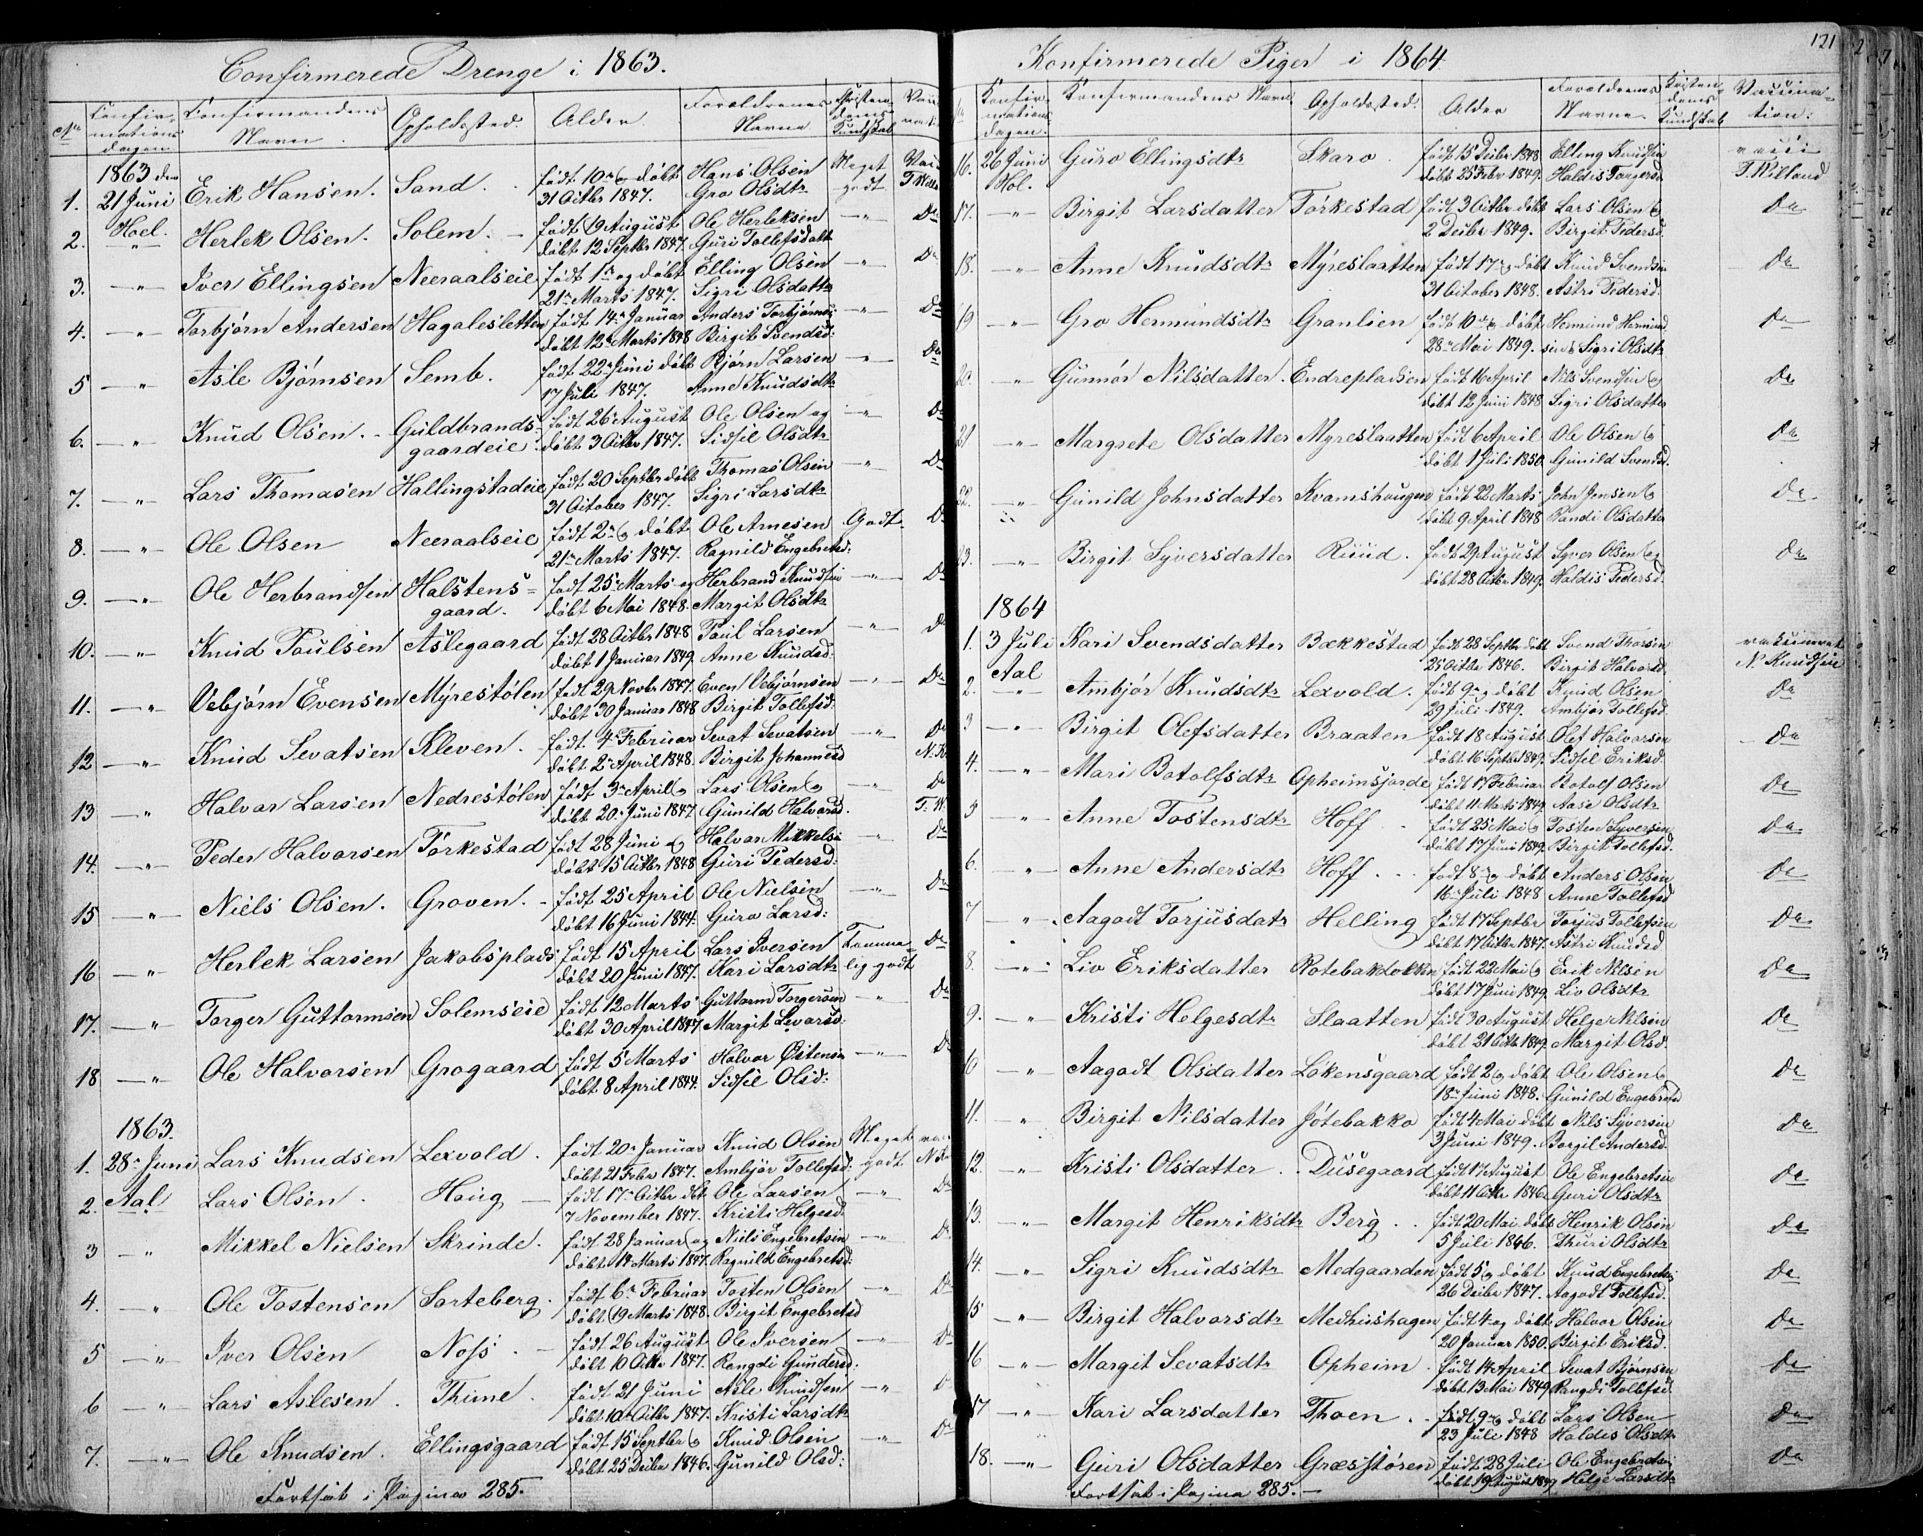 Confirmerede Drenge i 1863.
No Confirmations dagen Confirmandens Navn Opholdssted. Alder. Forældrenes Navne Christendoms Kundskab
1. 1863 den 21 Juni Hoel. Erik Hansen. Sand. født 10de og døbt 31 Octbr 1847. Hans Olsen Gro Olsdtr Meget godt
2. " Herlek Olsen. Solem. født 19 August døbt 12 Septbr 1847. Ole Herleksen Guri Tollefsdatt " Do
3. " Iver Ellingsen Neeraalseie født 1ste og døbt 21de Marts 1847. Elling Olsen Sigri Olsdatter " Do
4. " Torbjørn Andersen Hagalesletten født 14de Januar døbt 12 Marts 1848 Anders Torbjørns: Birgit Svendsd: " Do
5 " Asle Bjørnsen Semb. født 22 Juni døbt 17 Juli 1847. Bjørn Larsen Anne Knudsdtr " Do
6. " Knud Olsen. Guldbrandsgaardeie. født 26 August døbt 3 Octbr 1847. Ole Olsen og Sidsil Olsdtr " Do
7. " Lars Thomasen Hallingstadeie født 20 Septbr døbt 31 October 1847. Thomas Olsen Sigri Larsdtr " Do
8. " Ole Olsen Neeraalseie født 2de og døbt 21de Marts 1847. Ole Arnesen Ragnild Engebretsd: Godt Do
9. " Ole Herbrandsen Halstensgaard. født 25 Marts og døbt 6 Mai 1848. Herbrand Knudsen Margit Olsdtr " Do
10. " Knud Paulsen Aslegaard født 28 Octbr 1848 døbt 1 Januar 1849. Paul Larsen Anne Knudsd: " Do
11. " Vebjørn Evensen Myrestølen født 29 Novbr 1847. døbt 30 Januar 1848 Even Vebjørnsen Birgit Tollefsd: " Do
12 " Knud Sevatsen Kleven. født 4de Februar døbt 2de April 1848. Sevat Sevatsen Birgit Johannesd " Do N.K.
13 " Halvor Larsen Nedrestølen født 3de April og døbt 20de Juni 1847 Lars Olsen og Gunild Halvorsd. " Do T.W.
14. " Peder Halvorsen Torkestad født 28 Juni og døbt 15 Octbr 1848 Halvor Mikkelsen Guri Pedersd: " Do
15 " Niels Olsen. Groven. født 25 April døbt 16 Juni 1844. Ole Nielsen Guro Larsd: " Do
16 " Herlek Larsen Jakobsplads født 15 April døbt 20 Juni 1847. Lars Iversen Kari Larsdtr Temmelig godt Do
17. " Torger Guttormsen Solemseie født 12 Marts døbt 30 April 1847 Guttorm Torgersen Margit Sevatsd: " Do
18 " Ole Halvorsen Grogaard født 5 Marts døbt 8 April 1844. Halvor Østensen Sidsil Olsd: " Do
1863.
1. 28de Juni Aal Lars Knudsen Lexvold. født 20de Januar døbt 21 Febr 1847. Knud Olsen Ambjør Tollefsd: Meget godt
2. Lars Olsen. Haug født 17de Octbr døbt 7 November 1847. Ole Larsen Kristi Helgesd. " Do
3 " Mikkel Nielsen Skrinde. født 28 Januar og døbt 14 Marts 1847. Niels Engebretsen Ragnild Engebretsd: " Do
4. " Ole Tostensen Sorteberg. født 6te Februar døbt 19 Marts 1848. Tosten Olsen Birgit Engebretsd " Do
5 " Iver Olsen Noss. født 26 August døbt 10 Octbr 1847. Ole Iversen Rangdi Gundersd: " Do
6 " Lars Aslesen. Thune. født 21 Juni døbt 10de Octbr 1847. Asle Knudsen Kristi Larsdtr "
7. " Ole Knudsen. Ellingsgaard født 15 Septbr og døbt 25 Decbr 1846. Knud Olsen Gunild Olsd: " Do
Fortsat i Pagina 285.
121
Konfirmerede Piger i 1864
No Konfirmations dagen. Konfirmandens Navn Opholdssted. Alder Forældrenes Navne. Kristendoms Kundskab Vaccination:
16. 26 Juni Hol. Guro Ellingsdtr Skaro. født 15 Decbr 1848 døbt 25 Febr 1849. Elling Knudsen Haldis Torgersd T. Willand
17. " Birgit Larsdatter Torkestad født 3 Octbr døbt 2 Decbr 1849. Lars Olsen og Birgit Pedersd. Do
18. " Anne Knudsdtr Myreslaatten født 17de og døbt 31 October 1848. Knud Svendsen Astri Pedersd. Do
19 " Gro Hermundsdtr Granlien født 10de og døbt 28de Mai 1849. Hermund Hermundsens Sigri Olsdtr Do
20. " Gunnor Nilsdatter. Endrepladsen født 16 April døbt 12 Juni 1848 Nils Svendsen og Sigri Olsdatter Do
21 " Margrete Olsdatter Myreslaatten født 6 April døbt 1 Juli 1850. Ole Olsen og Gunild Svendsd. Do
22. " Gunild Johnsdatter Kvamshaugen født 22 Marts døbt 9 April 1848 John Jensen og Randi Olsdatter Do
23. " Birgit Syversdatter Ruud. født 29 August døbt 28 Octbr 1849. Syver Olsen og Haldis Pedersd. Do
1864
1. 3 Juli Aal Kari Svendsdatter Bækkestad født 28 Septbr døbt 25 Octbr 1846. Svend Thorsen Birgit Halvorsd. N. Knudsen
2. " Ambjør Knudsdtr Lexvold. født 9de og døbt 29 Juli 1849. Knud Olsen Ambjør Tollefsd Do
3 " Birgit Olefsdatter Braaten født 18 August døbt 16 Septbr 1849. Olef Halvorsen Sidsil Eriksd. Do
4. " Mari Botolfsdtr Opheimsjorde født 17 Februar døbt 11 Marts 1849. Botolf Olsen Aase Olsdtr Do
5 " Anne Tostensdtr Hoff født 25 Mai og døbt 17 Juni 1849. Tosten Syversen Birgit Tollefsd: Do
6. " Anne Andersdtr Hoff. født 8de og døbt 16de Juli 1848 Anders Olsen Anne Tollefsd Do
7 " Aagodt Torjusdatr Helling født 17 Septbr døbt 17 Octbr 1847. Torjus Tollefsen Astri Knudsd Do
8. " Liv Eriksdatter Rotebakdokken født 22 Mai og døbt 17 Juni 1849. Erik Nilsen Liv Olsdtr Do
9. " Kristi Helgesdtr Slaatten født 30 August døbt 21 Octbr 1849. Helge Nilsen Margit Olsd. Do
10 " Aagodt Olsdatter Løkensgaard født 2 og døbt 18de Juni 1848. Ole Olsen og Gunild Engebretsd Do
11. " Birgit Nilsdatter Jøtebakko født 4 Mai døbt 3 Juni 1849. Nils Syversen Borgil Andersd. Do
12. " Kristi Olsdatter. Dusegaard født 17 August døbt 11 Octbr 1846. Ole Engebretsen Guri Olsdtr Do
13. " Margit Henriksdtr Berg. født 20 Mai døbt 5 Juli 1846. Henrik Olsen Thuri Olsdtr Do
14. " Sigri Knudsdtr Medgaarden født 5 og døbt 26 Decbr 1847. Knud Engebretsen Aagodt Tollefsd. Do
15 " Birgit Halvorsdtr Medhushagen født 4 og døbt 20 Januar 1850. Halvor Olsen Birgit Eriksd. Do
16 " Margit Sevatsdtr Opheim. født 14 April døbt 13 Mai 1849 Sevat Bjørnsen Rangdi Tollefsd. Do
17 " Kari Larsdatter Thoen. født 9de og døbt 23 Juli 1848 Lars Olsen Haldis Olsdtr Do
18. " Guri Olsdatter Græsstøren født 28 Juli døbt 19 August 1849 Ole Engebretsen Helge Larsdtr Do
Fortsat i Pagina 285.